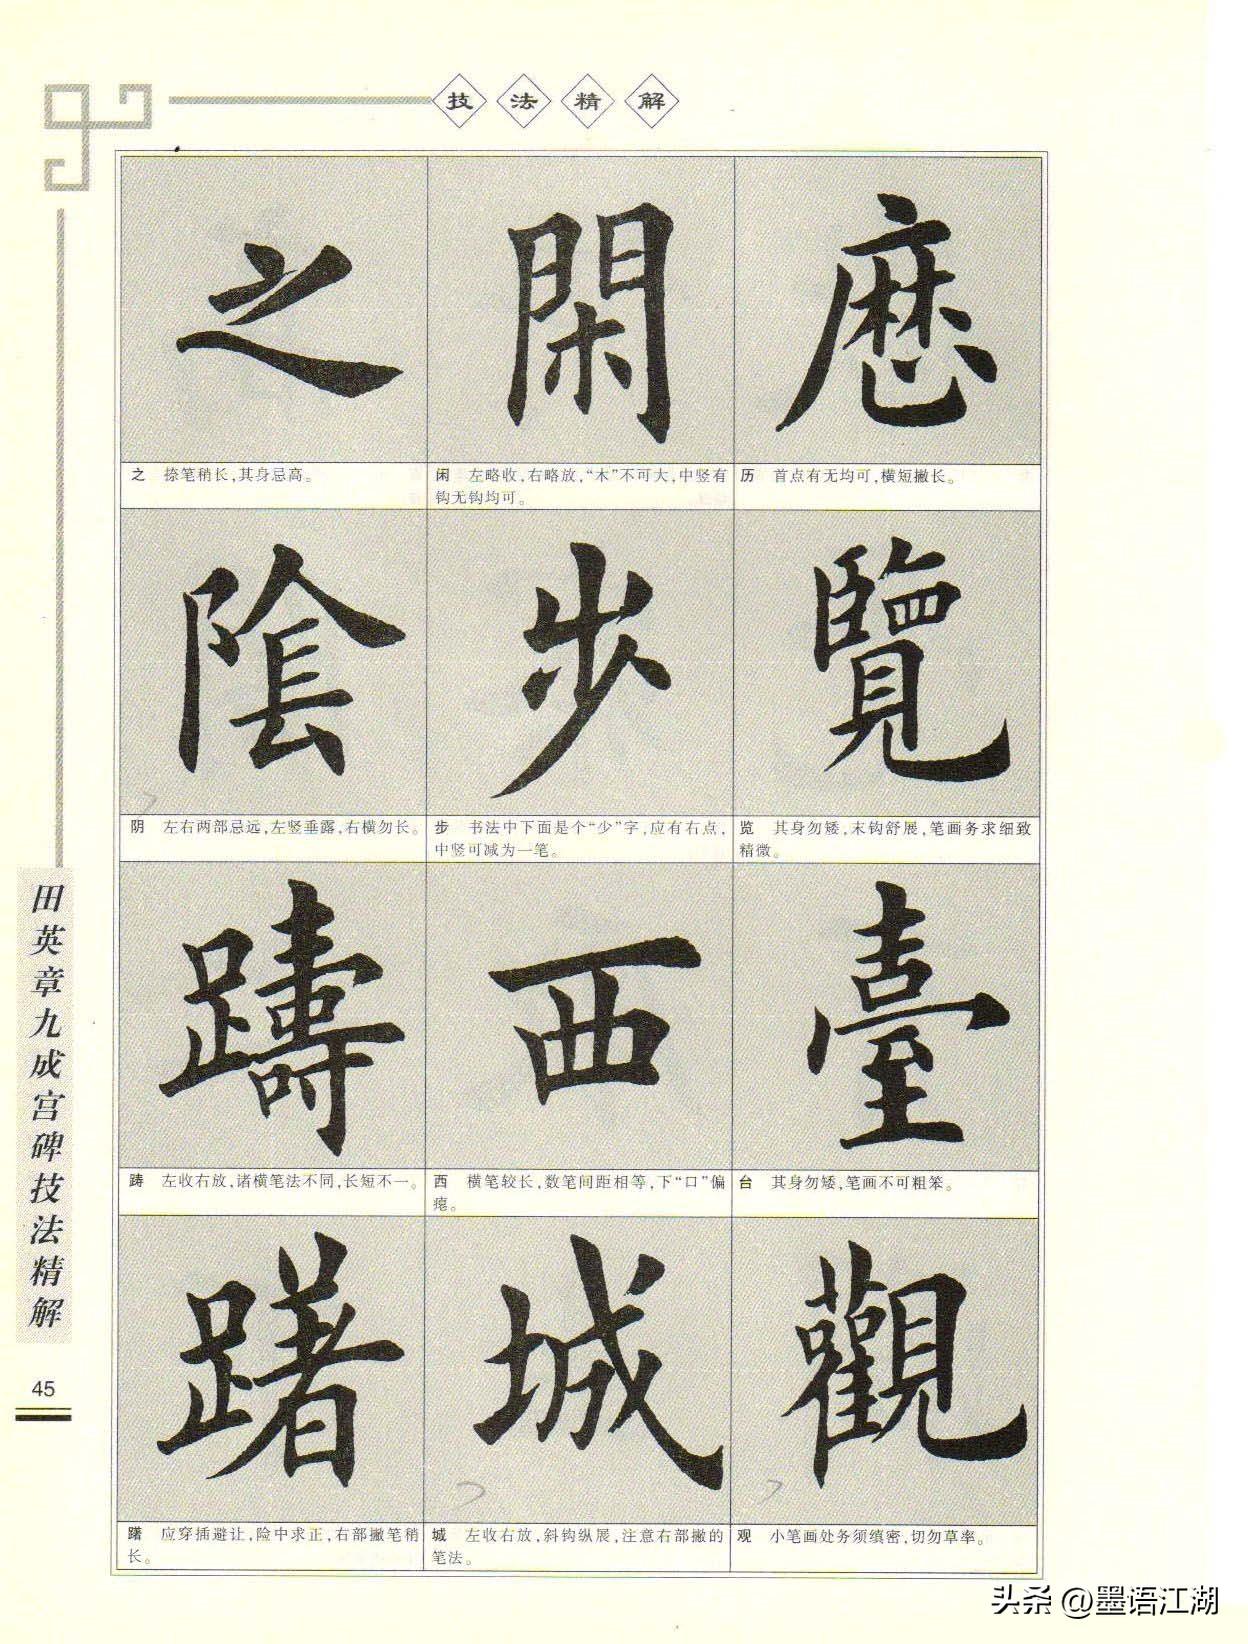 技法精解
之 閑 歷
之　捺笔稍长,其身忌高。
闲　左略收,右略放,“木”不可大,中竖有
钩无钩均可。
历　首点有无均可,横短撇长。
陰 步 覽
阴　左右两部忌远,左竖垂露,右横勿长。
步　书法中下面是个“少”字,应有右点,
中竖可减为一笔。
览　其身勿矮,末钩舒展,笔画务求细致
精微。
躊 西 臺
踌　左收右放,诸横笔法不同,长短不一。
西　横笔较长,数笔间距相等,下“口”偏
宽。
台　其身勿矮,笔画不可粗笨。
躇 城 觀
躇　应穿插避让,险中求正,右部撇笔稍
长。
城　左收右放,斜钩纵展,注意右部撇的
笔法。
观　小笔画处务须缜密,切勿草率。
田英章九成宫碑技法精解
45
头条 @墨语江湖